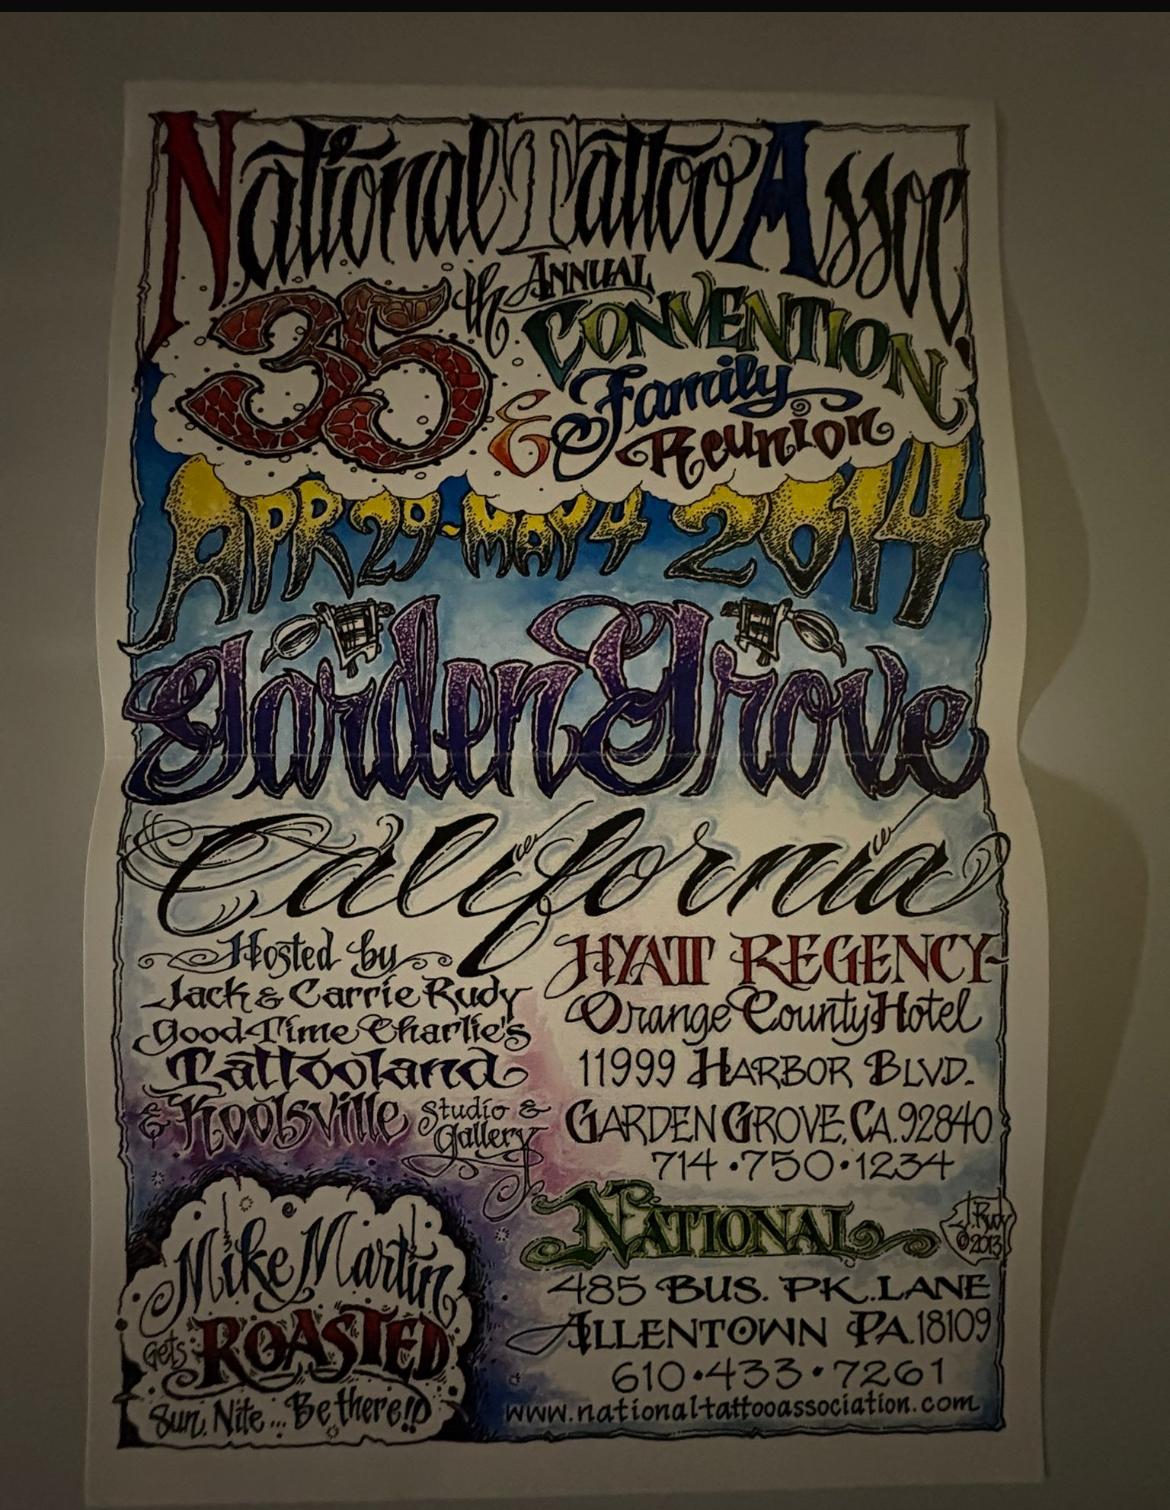 National Tattoo Assoc
35th Annual
Convention
& Family
Reunion
Apr 29-May 4 2014
Garden Grove
California
Hosted by
Jack & Carrie Rudy
Good Time Charlie's
Tattooland
& Koolsville Studio &
Gallery
Hyatt Regency-
Orange County Hotel
11999 Harbor Blvd.
Garden Grove, Ca. 92840
714•750•1234
Mike Martin
gets ROASTED
Sun. Nite... Be there!!
National
J. Rudy
© 2013
485 Bus. Pk. Lane
Allentown Pa. 18109
610•433•7261
www.national-tattooassociation.com